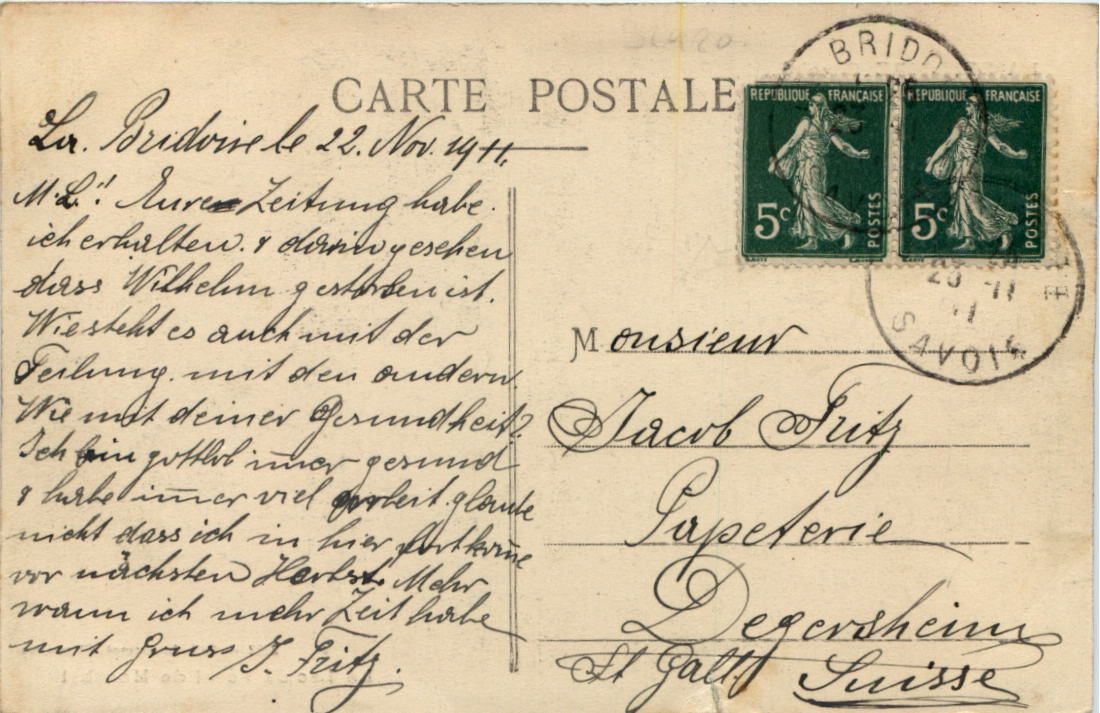 CARTE POSTALE
La. Bridoire le 22. Nov. 1911.
M. L.! Eure Zeitung habe
ich erhalten. & darin gesehen
dass Wilhelm gestorben ist.
Wie steht es auch mit der
Teilung. mit den andern.
Wie mit deiner Gesundheit?
Ich bin gottlob im̄er gesund
& habe im̄er viel arbeit. glaube
nicht dass ich in hier fortkom̄e
vor nächsten Herbst. Mehr
wann ich mehr Zeit habe
mit Gruss J. Fritz.
REPUBLIQUE FRANÇAISE
5c POSTES
REPUBLIQUE FRANÇAISE
5c POSTES
BRIDO
23 11
11
SAVOIE
Monsieur
Jacob Fritz
Papeterie
Degersheim
St Gall. Suisse